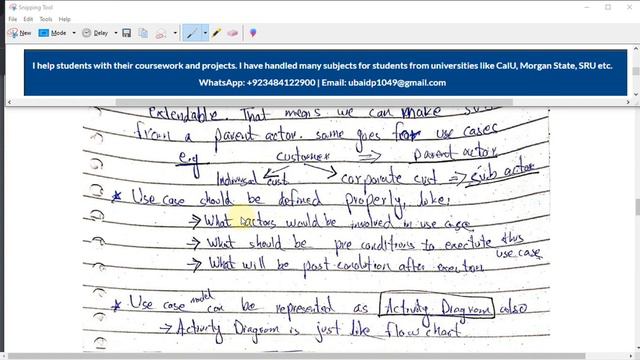 Snipping Tool
File Edit Tools Help
New Mode Delay
I help students with their coursework and projects. I have handled many subjects for students from universities like CalU, Morgan State, SRU etc.
WhatsApp: +923484122900 | Email: ubaidp1049@gmail.com
extendable. That means we can make
from a parent actor. same goes for use cases
e.g customer => parent actor
Individual cust corporate cust => sub actor
* Use case should be defined properly, like:
→ What actors would be involved in use case
→ What should be pre conditions to exectute this
use case
→ What will be post condition after execution
* Use case model can be represented as Activity Diagram also
→ Activity Diagram is just like flow chart